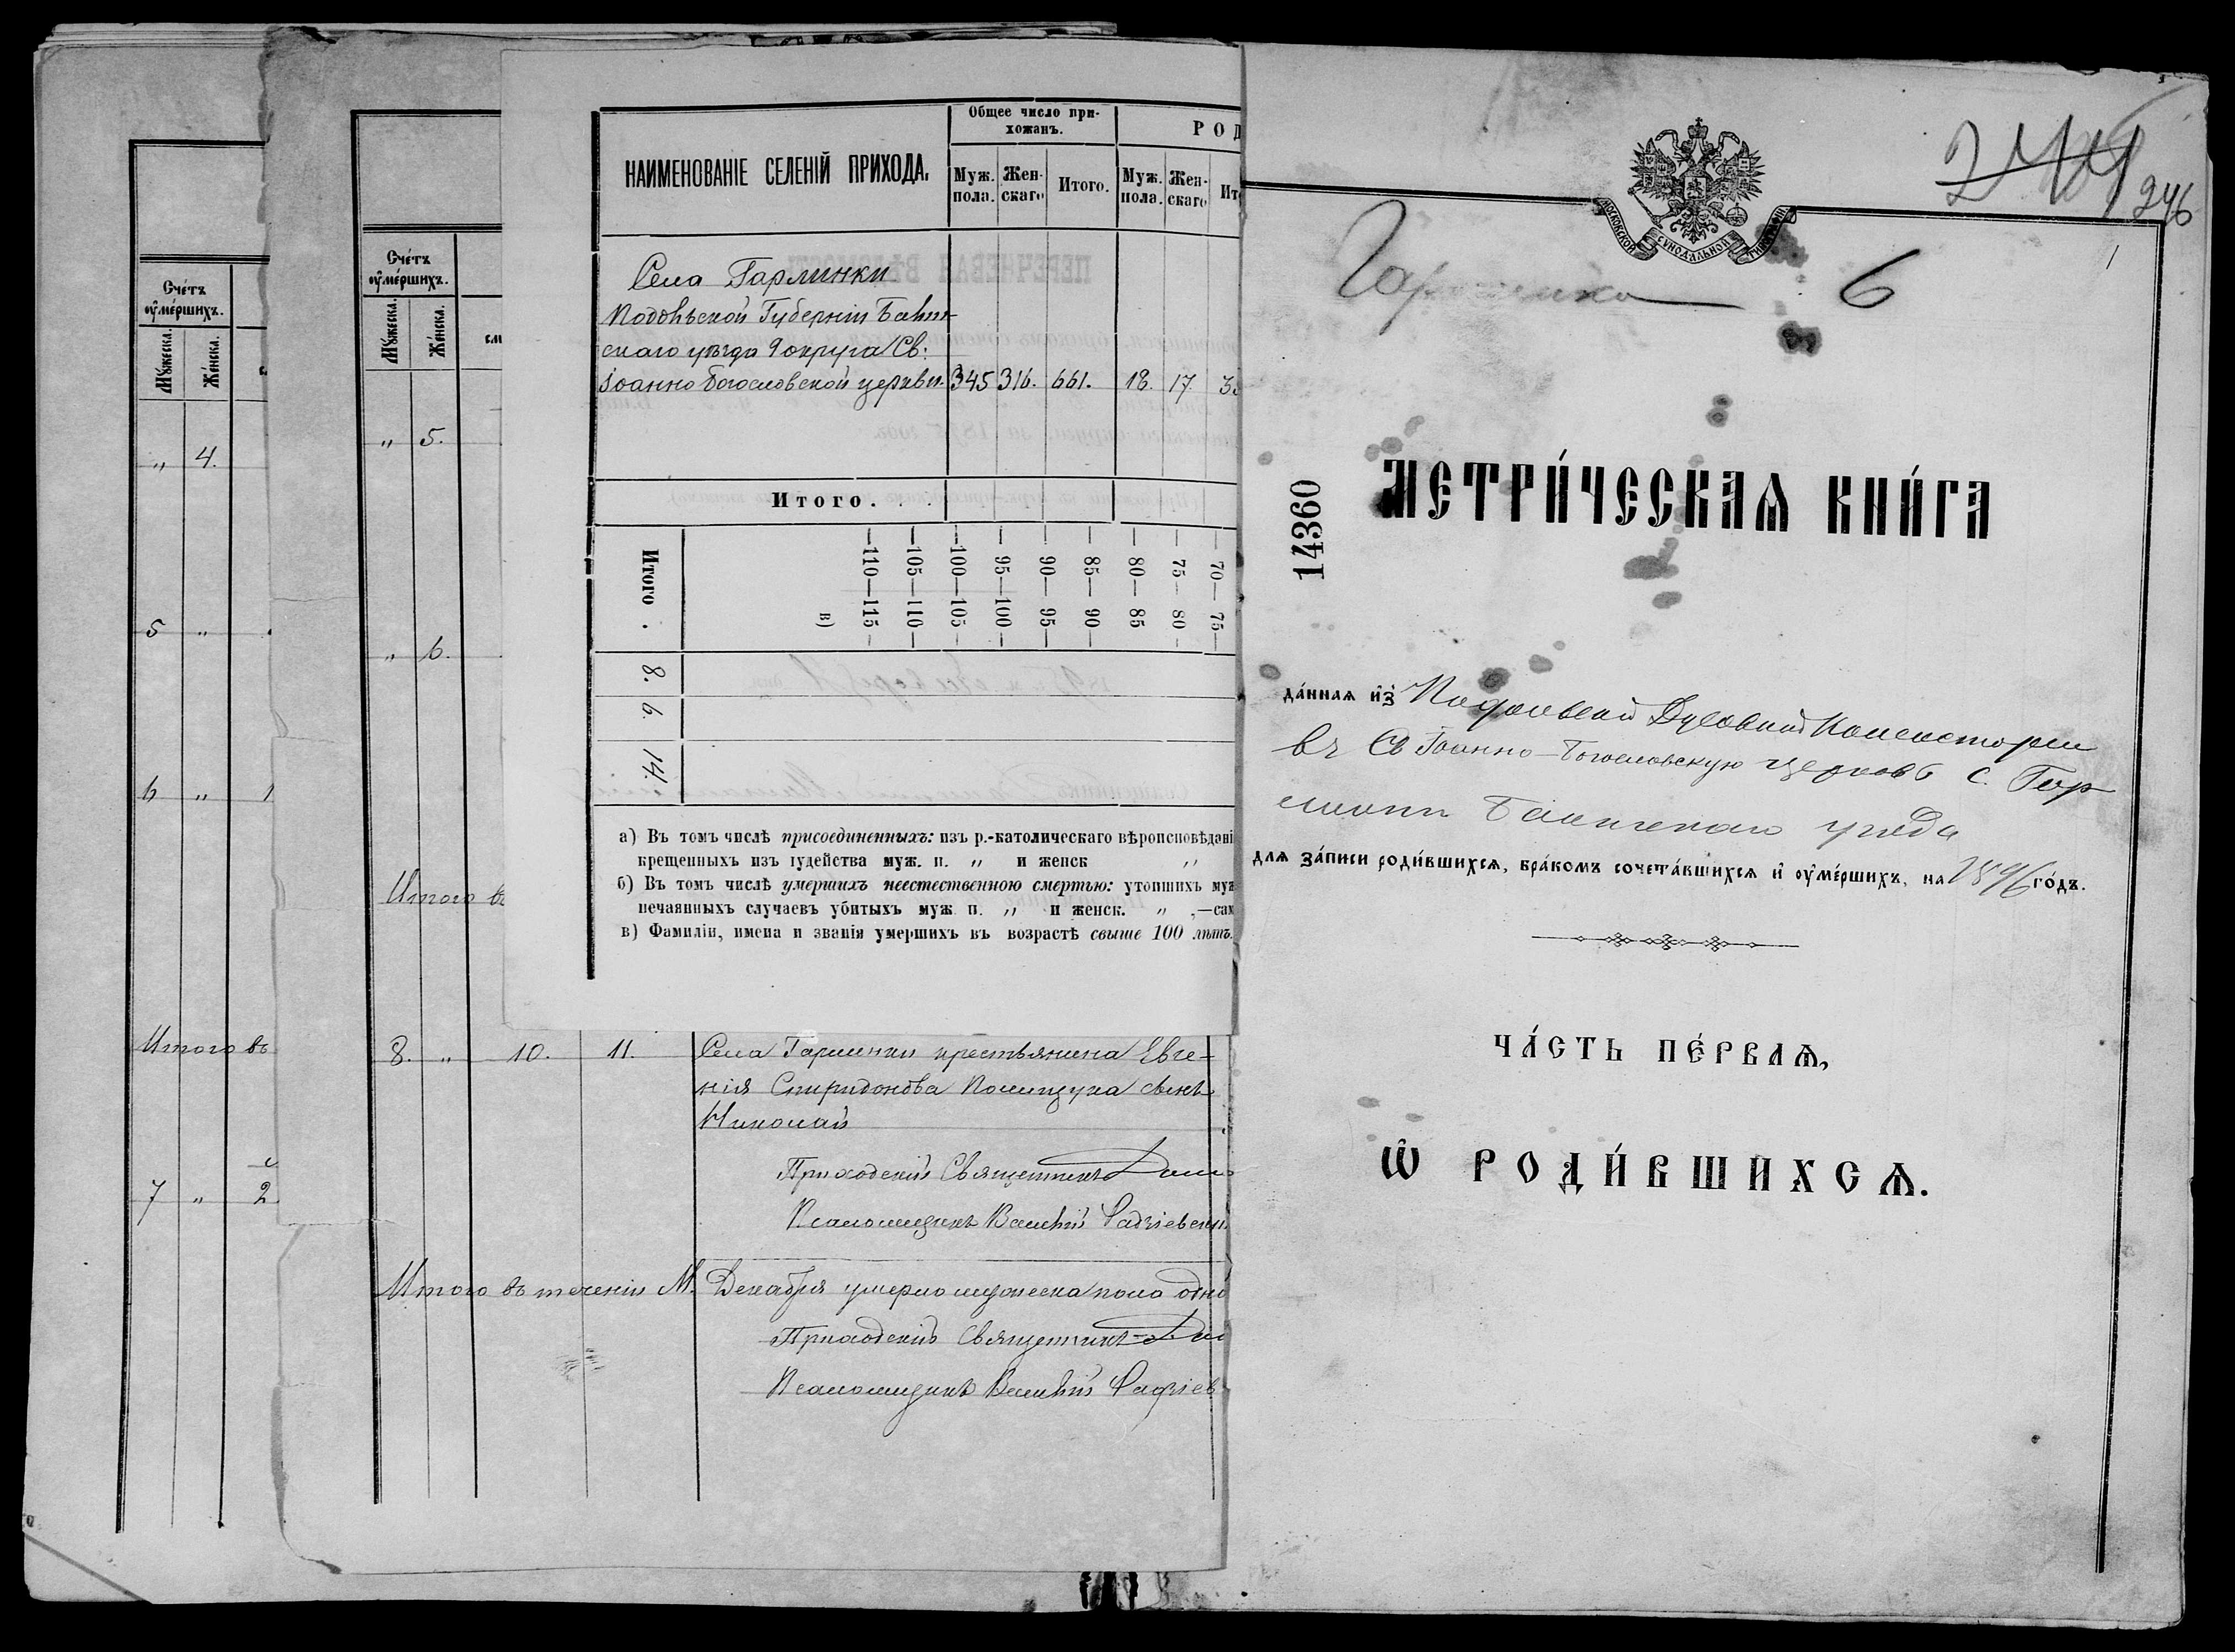 Счётъ
оумéршихъ.
Мꙋ́жеска.
Же́нска.
„ 4.
5 „
6 „ 1
Итого въ
7 „ 2
Счётъ
оумéршихъ.
Мꙋ́жеска.
Же́нска.
„ 5.
„ 6.
Итого въ
8. „ 10. 11. Села Гарлинки крестьянина Евге-
нія Спиридонова Полищука сынъ
Николай
Приходскій Священникъ
Псаломщикъ Василій
Итого въ теченіи М. Декабря умерло мужеска пола одн
Приходскій Священникъ
Псаломщикъ Василій
НАИМЕНОВАНІЕ СЕЛЕНІЙ ПРИХОДА.
Общее число при-
хожанъ.
РОД
Муж. пола.
Жен- скаго
Итого.
Муж. пола.
Жен- скаго
Ит
Села Гарлинки
Подольской Губерніи Балт-
скаго уѣзда 9 округа Св:
Іоанно Богословской церкви. 345 316. 661. 18. 17. 3
Итого . . .
Итого .
в)
—110—115—
—105—110—
—100—105—
— 95—100—
— 90— 95—
— 85— 90—
— 80— 85
— 75— 80—
— 70— 75—
8.
6.
14.
а) Въ томъ числѣ присоединенныхъ: изъ р.-католическаго вѣроисповѣдані
крещенныхъ изъ іудейства муж. п. „ и женск „
б) Въ томъ числѣ умершихъ неестественною смертью: утопшихъ муж
нечаянныхъ случаевъ убитыхъ муж п. „ и женск. „ ,—сам
в) Фамиліи, имена и званія умершихъ въ возрастѣ свыше 100 лѣтъ.
МОСКОВСКОЙ СѴНОДАЛЬНОЙ ТИПОГРАФІИ
246
1
6
14360
МЕТРИ́ЧЕСКАѦ КНИ́ГА
да́ннаѧ и҆з̾ Подольской Духовной Консисторіи
въ Св Іоанно-Богословскую церковь с. Гар
Балтскаго уѣзда
длѧ за́писи роди́вшихсѧ, бра́комъ сочета́вшихсѧ и҆ оумéршихъ, на 1896 го́дъ.
ЧА́СТЬ ПЕ́РВАѦ,
Ѽ РОДИ́ВШИХСѦ.